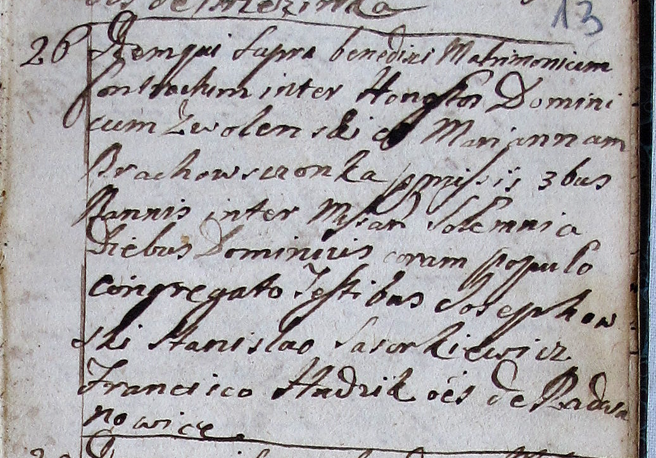 13
26 Idem qui Supra benedixi Matrimonium
Contractum inter Honestos Domini
cum Zwolenski et Mariannam
Brachowsczonka pmissis 3bus
Bannis inter Missar Solemnia
Diebus Dominicis coram populo
congregato Testibus Josepho
ski Stanislao Sasorkiewicz
Francisco Hudzik oes de Radwa
nowice